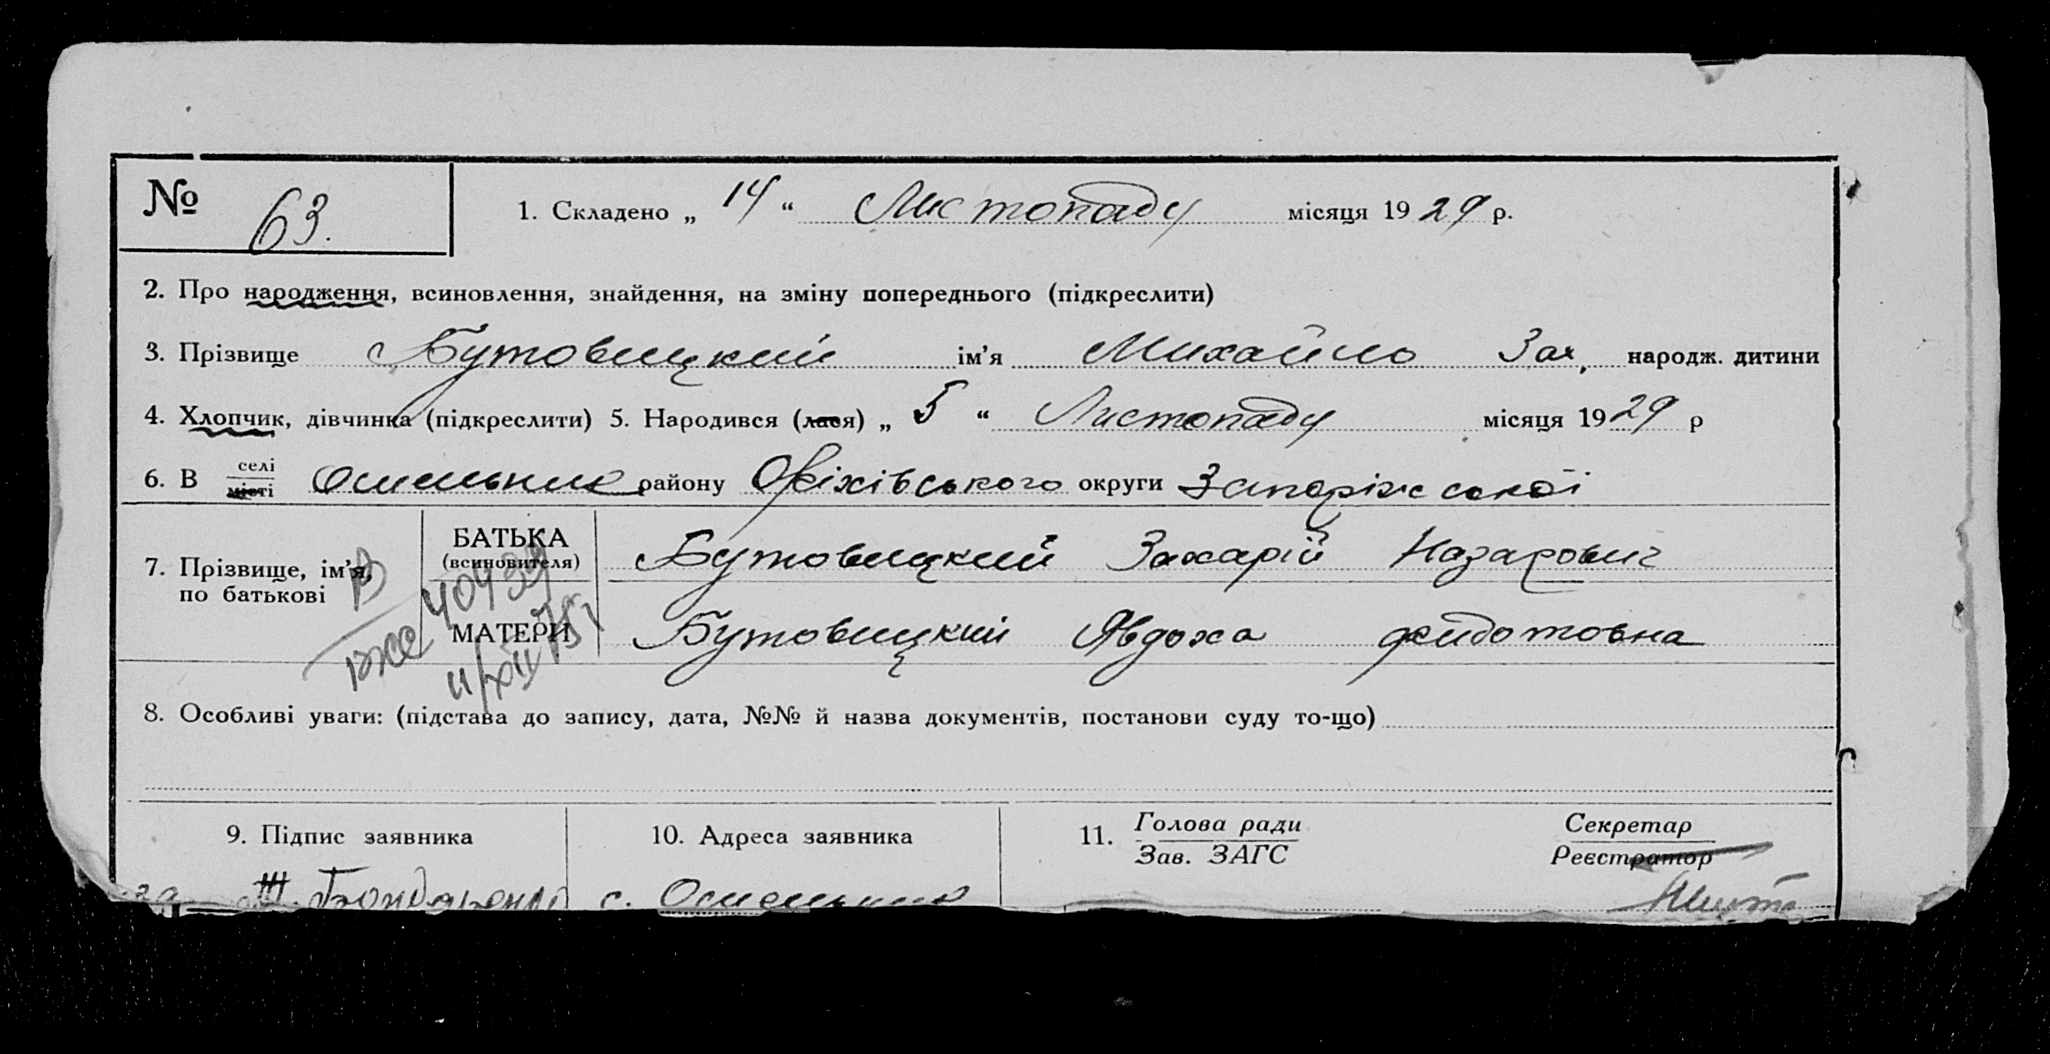 № 63. 1. Складено „ 14 “ Листопаду місяця 19 29 р.
2. Про народження, всиновлення, знайдення, на зміну попереднього (підкреслити)
3. Прізвище Бутовицкий ім’я Михайло Зах. народж. дитини
4. Хлопчик, дівчинка (підкреслити) 5. Народився (лася) „ 5 “ Листопаду місяця 19 29 р
6. В селі
місті Омельник району Оріхівського округи Запоріжської
7. Прізвище, ім’я,
по батькові
БАТЬКА
(всиновителя)
Бутовицкий Захарій Назарович
МАТЕРИ
Бутовицкий Явдоха Фидотовна
8. Особливі уваги: (підстава до запису, дата, №№ й назва документів, постанови суду то-що)
9. Підпис заявника 10. Адреса заявника 11. Голова ради
Зав. ЗАГС
Секретар
Реєстратор
Бондаренко с. Омельник